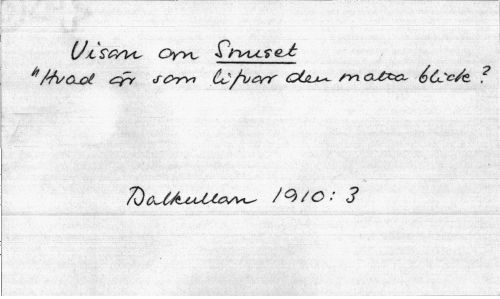 Visan om Snuset
"Hvad är som lifvar den matta blick?
Dalkullan 1910: 3